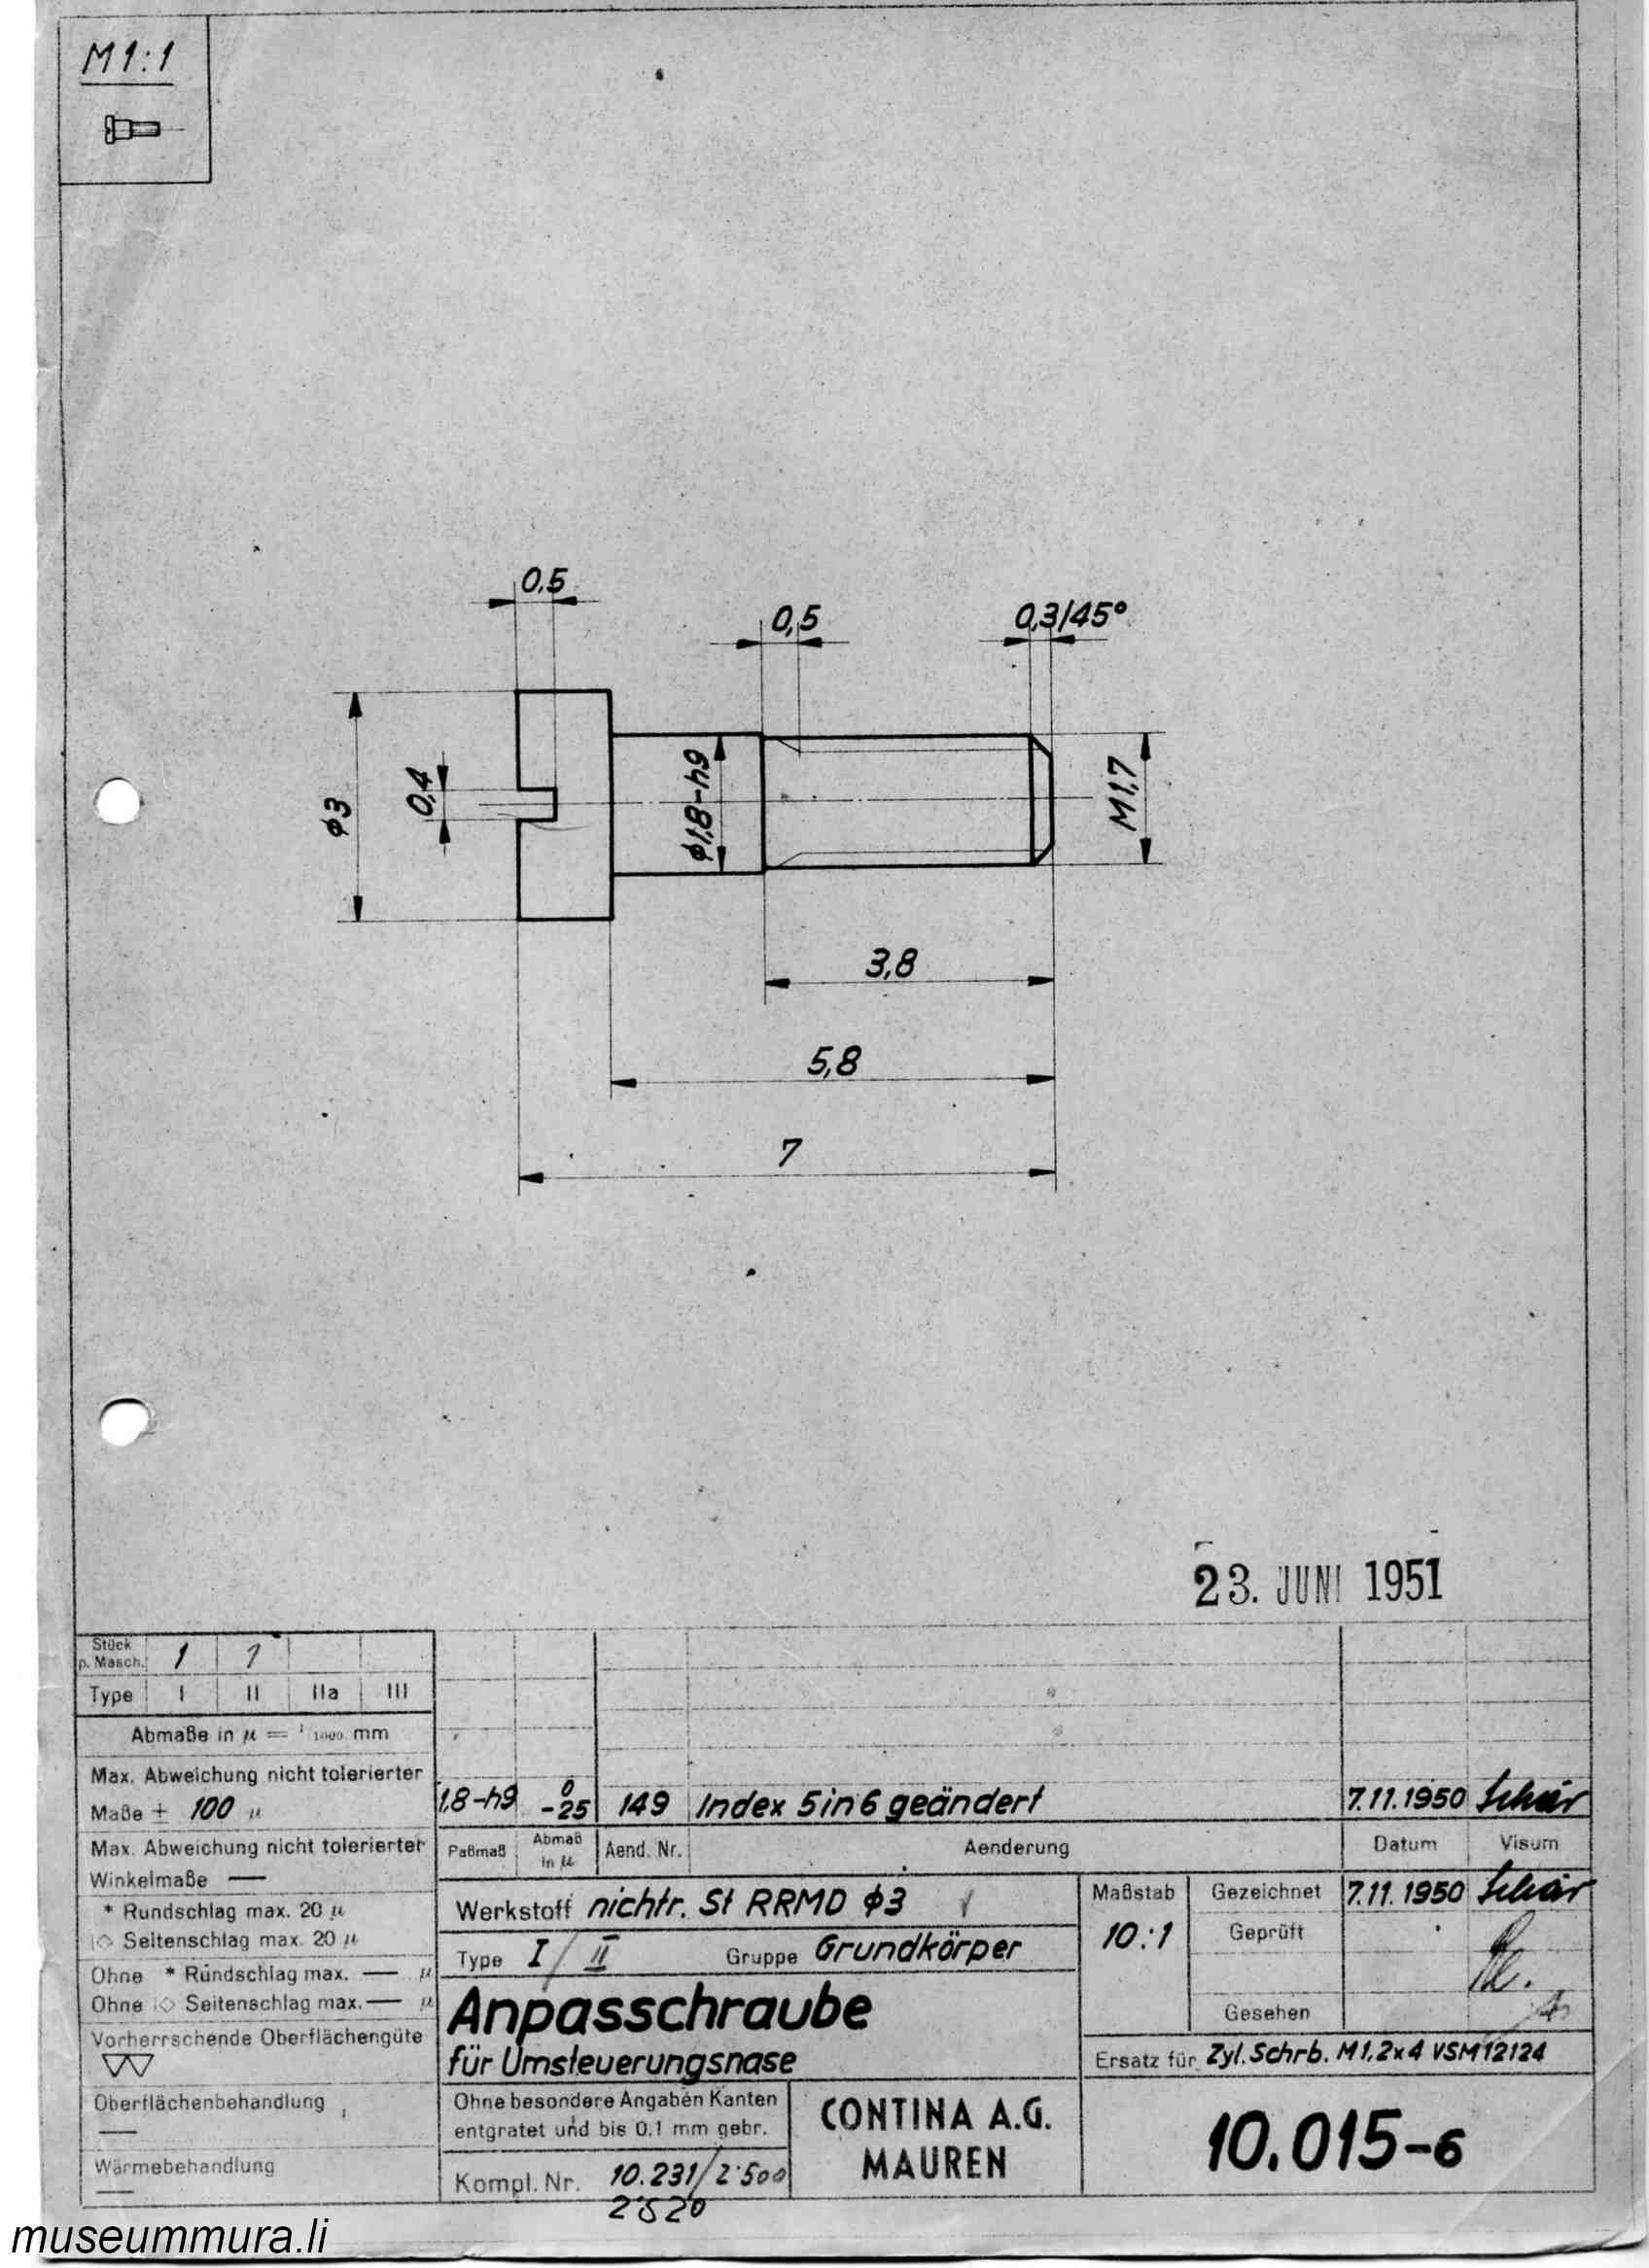 M 1:1
0,5
0,5
0,3/45°
ϕ3
0,4
ϕ1,8-h9
M1,7
3,8
5,8
7
23. JUNI 1951
Stück p. Masch. 1 1
Type I II IIa III
Abmaße in µ = 1/1000 mm
Max. Abweichung nicht tolerierter
Maße ± 100 µ
Max. Abweichung nicht tolerierter
Winkelmaße —
* Rundschlag max. 20 µ
◇ Seitenschlag max. 20 µ
Ohne * Rundschlag max. — µ
Ohne ◇ Seitenschlag max. — µ
Vorherrschende Oberflächengüte
▽▽
Oberflächenbehandlung
—
Wärmebehandlung
—
1,8-h9 0 -25 149 Index 5 in 6 geändert 7.11.1950 Schär
Paßmaß Abmaß in µ Aend. Nr. Aenderung Datum Visum
Werkstoff nichtr. St RRMD ϕ3
Type I / II Gruppe Grundkörper
Anpasschraube
für Umsteuerungsnase
Ohne besondere Angaben Kanten
entgratet und bis 0.1 mm gebr.
Kompl. Nr. 10.231/2.500
2520
CONTINA A.G.
MAUREN
Maßstab
10:1
Gezeichnet 7.11.1950 Schär
Geprüft
Gesehen
Ersatz für Zyl. Schrb. M1,2x4 VSM 12124
10.015-6
museummura.li